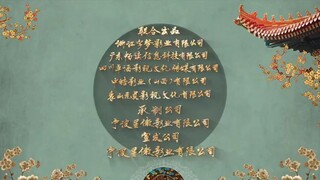 联合出品
浙江字梦影业有限公司
广东杨读信息科技有限公司
四川华语影视文化传媒有限公司
中皓影业（山西）有限公司
泰山光影影视文化有限公司
承制公司
宁波星傲影业有限公司
宣发公司
宁波星傲影业有限公司